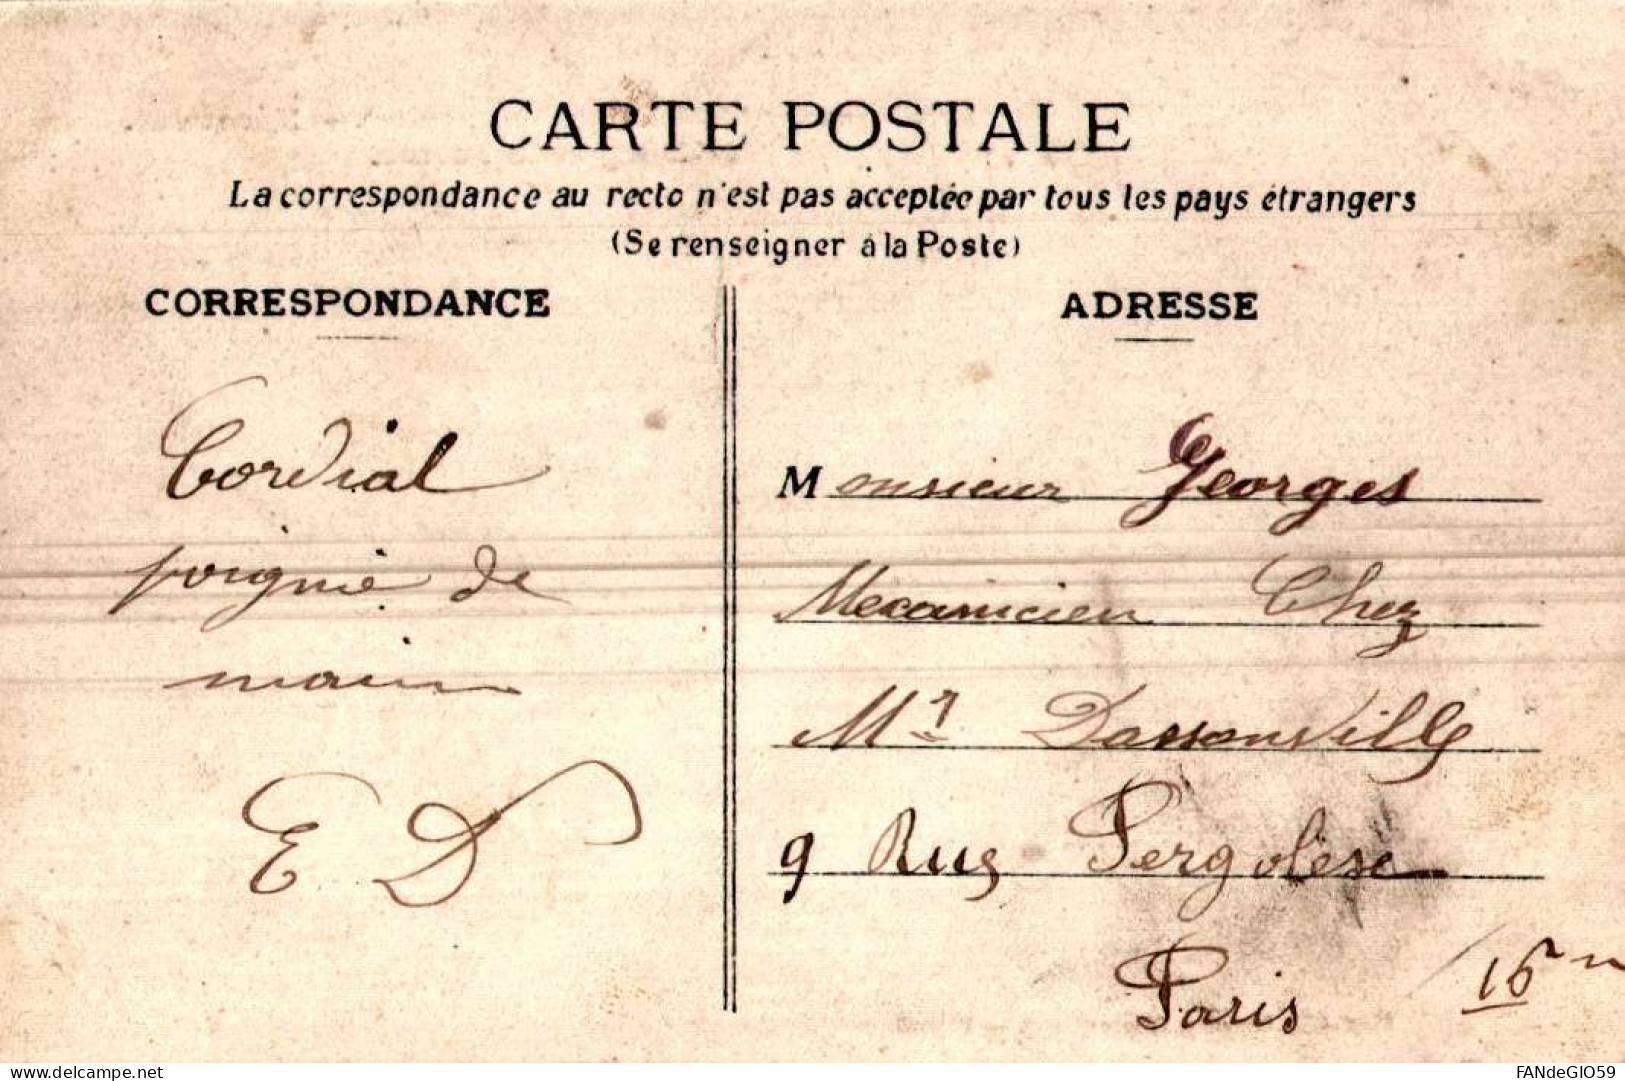 CARTE POSTALE
La correspondance au recto n'est pas acceptée par tous les pays étrangers
(Se renseigner à la Poste)
CORRESPONDANCE
Cordial
poignié de
main
E D
ADRESSE
Monsieur Georges
Mecanicien Chez
Mr Dassonville
9 Rue Pergolèse
Paris 16m
delcampe.net
FANdeGIO59